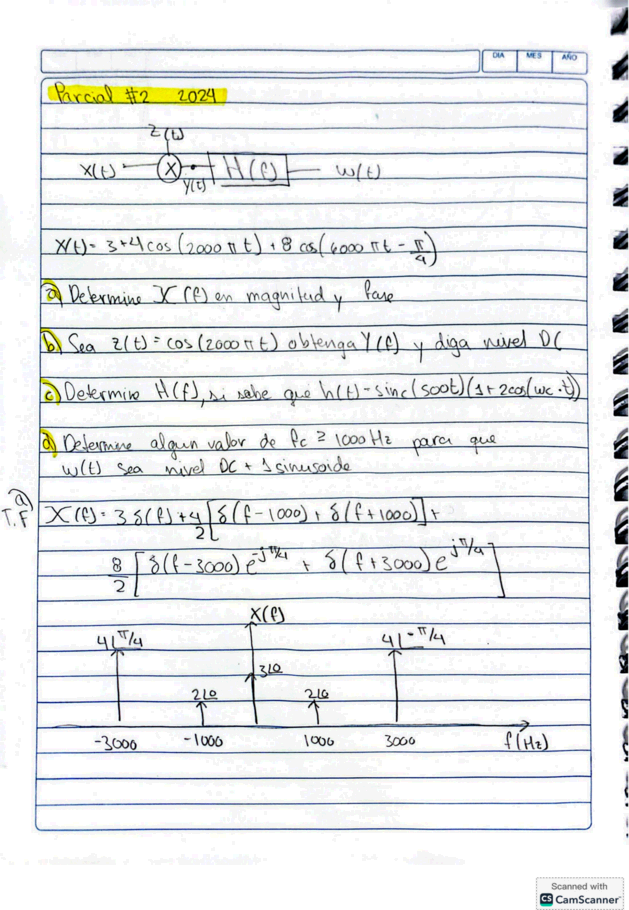 DIA MES AÑO
Parcial #2 2024
Z(t)
X(t) X H(f) w(t)
Y(t)
X(t) = 3+4cos(2000πt)+8cos(6000πt - π/4)
a) Determine X(f) en magnitud y fase
b) Sea z(t)=cos(2000πt) obtenga Y(f) y diga nivel DC
c) Determine H(f), si sabe que h(t)=sinc(500t)(1+2cos(wc·t))
d) Determine algun valor de fc ≥ 1000 Hz para que
w(t) sea nivel DC + 1 sinusoide
a)
T.F X(f)= 3δ(f)+4/2[δ(f-1000)+δ(f+1000)]+
8/2[δ(f-3000)e^-jπ/4 + δ(f+3000)e^jπ/4]
X(f)
4∠π/4 4∠-π/4
3∠0
2∠0 2∠0
-3000 -1000 1000 3000 f(Hz)
Scanned with
CS CamScanner